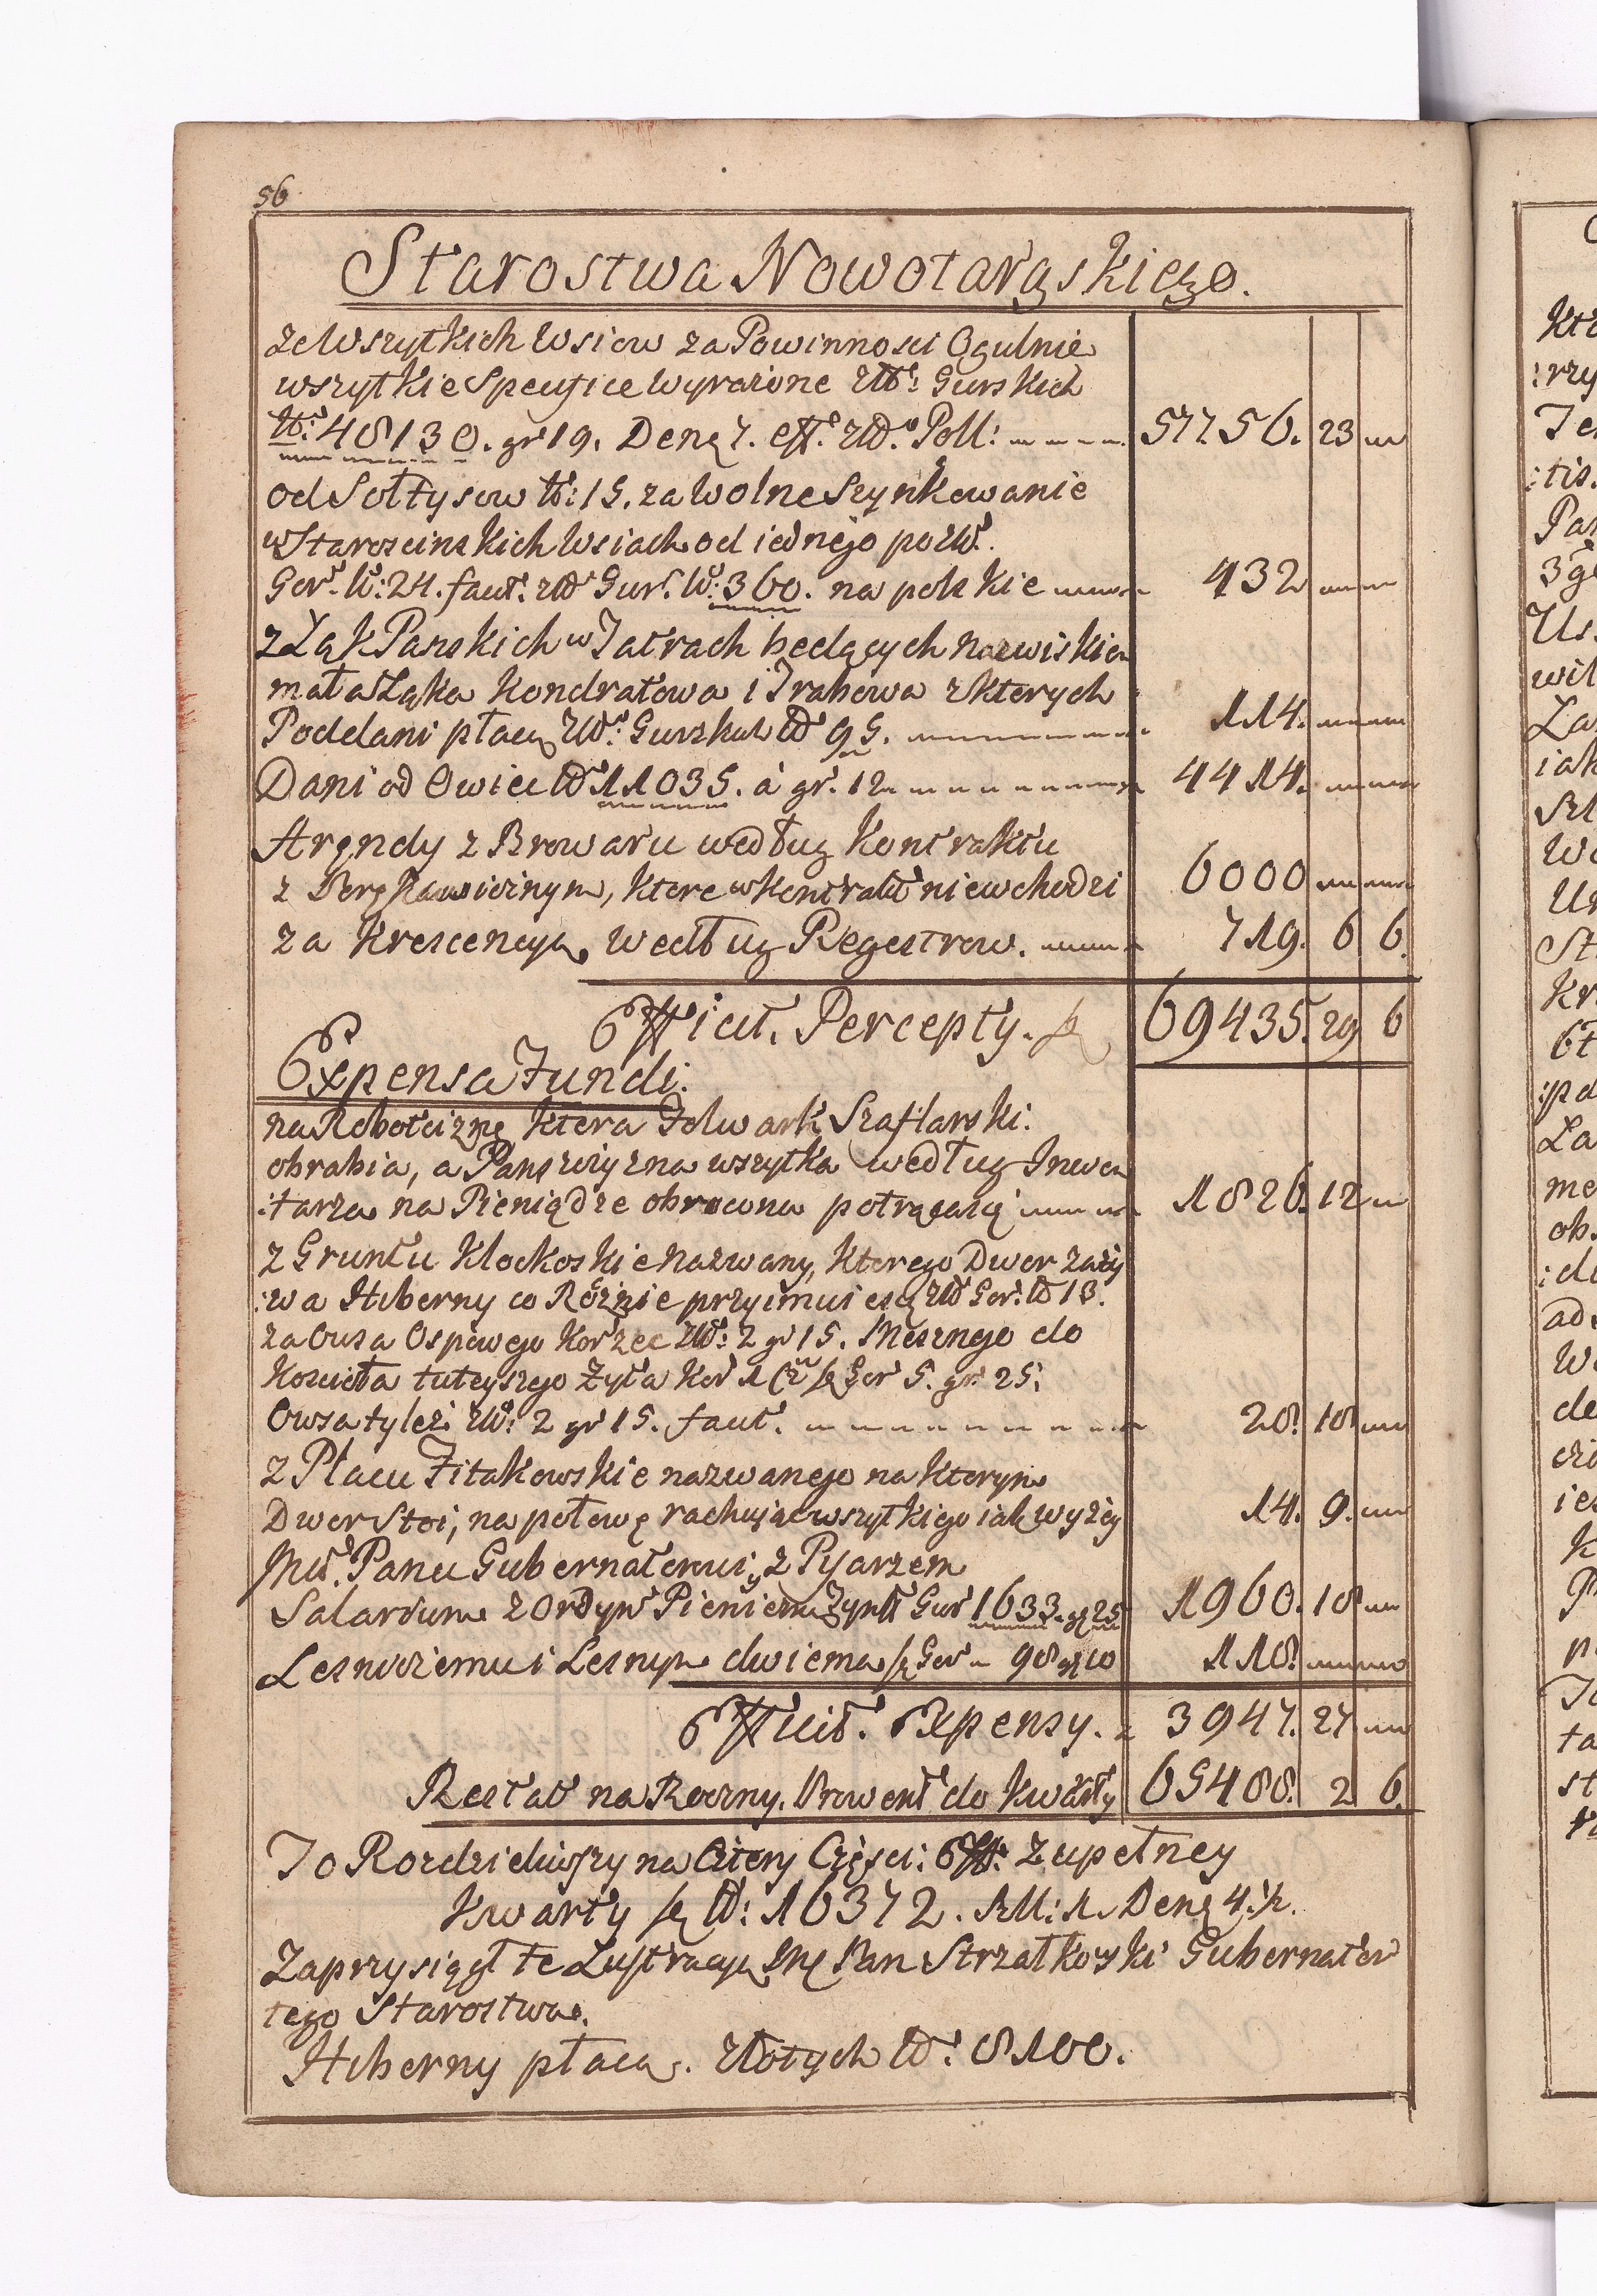 56
Starostwa Nowotargskiego.
ze Wszytkich Wsiow za Powinnosci Ogulnie
wszytkie Specifice Wyrażone Złł: Gurskich
Nr: 48130. gr 19. Den. 7. eff. Złł. Poll: 57756. 23
od Sołtysow Nr: 15. za Wolne Szynkowanie
w Staroscinskich Wsiach od iednego po Złł.
Gor. Nr: 24. facit. Złł Gur. Nr: 360. na polskie 432
z Łąk Panskich w Tatrach będących nazwiskiem
mała Łąka Kondratowa i Trahowa z kterych
Poddani płacą Złł: Gurskich Nr 95. 114.
Dani od Owiec Nr 11035. á gr. 12 4414.
Arędy z Browaru według Kontraktu
z Karczowicznym, ktere w Kontrakt niewchodzi 6000
za Krescencyą według Regestrow. 719. 6 6.
Efficit. Percepty. 69435. 29 6
Expensa Fundi.
na Robociznę ktera Folwark Szaflarski.
obrabia, a Panszczyzna wszytka według Inwen
:tarza na Pieniądze obrocona potrącaią 1826. 12
z Gruntu Klockoskie nazwany, kterego Dwor zaży
:wa Hiberny co Rożnie przyimuiesz Złł Gor. Nr 13.
za Owsa Ospowego Korzec Złł: 2 gr 15. Mesznego do
Kościoła tuteyszego Żyta Kor 1 Gor 5. gr. 25.
Owsa tyleż Złł: 2 gr 15. facit. 28. 18
z Placu Fitakowskie nazwanego na kterym
Dwor Stoi, na połowę rachuiąc wszytkiego iak wyżey 14. 9.
Panu Gubernatorowi, z Pisarzem
Salarium z Ordyn Pieniezn Zynłł Gur 1633. gr 25 1960. 18
Lesniczemu i Lesnym dwiema Gor 98 gr 10 118.
Efficit. Expensy. 3947. 27
Restat na Roczny. Prowent do Kwarty 65488. 2 6.
To Rozdzieliwszy na Cztery Częsci: Eff: Zupełney
Kwarty Nr: 16372. Den. 4.
Zaprzysiągł te Lustracyą Pan Strzałkowski Gubernator
tego Starostwa.
Hiberny płacą. Złotych Nr: 8100.